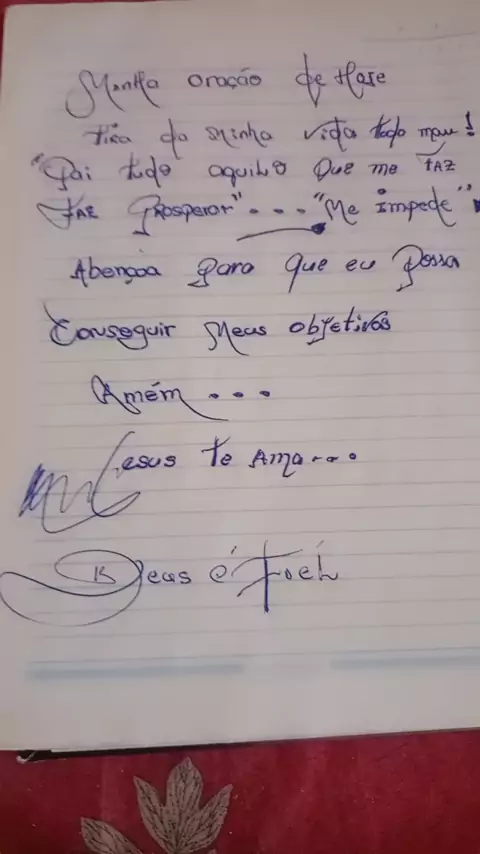 Minha oração de Hoje
Tira da minha vida todo mau!
"Pai tudo aquilo que me faz
Faz Prosperar"... "Me impede"
Abençoa para que eu Possa
Conseguir Meus objetivos
Amém...
Jesus te Ama...
Deus é Fiel